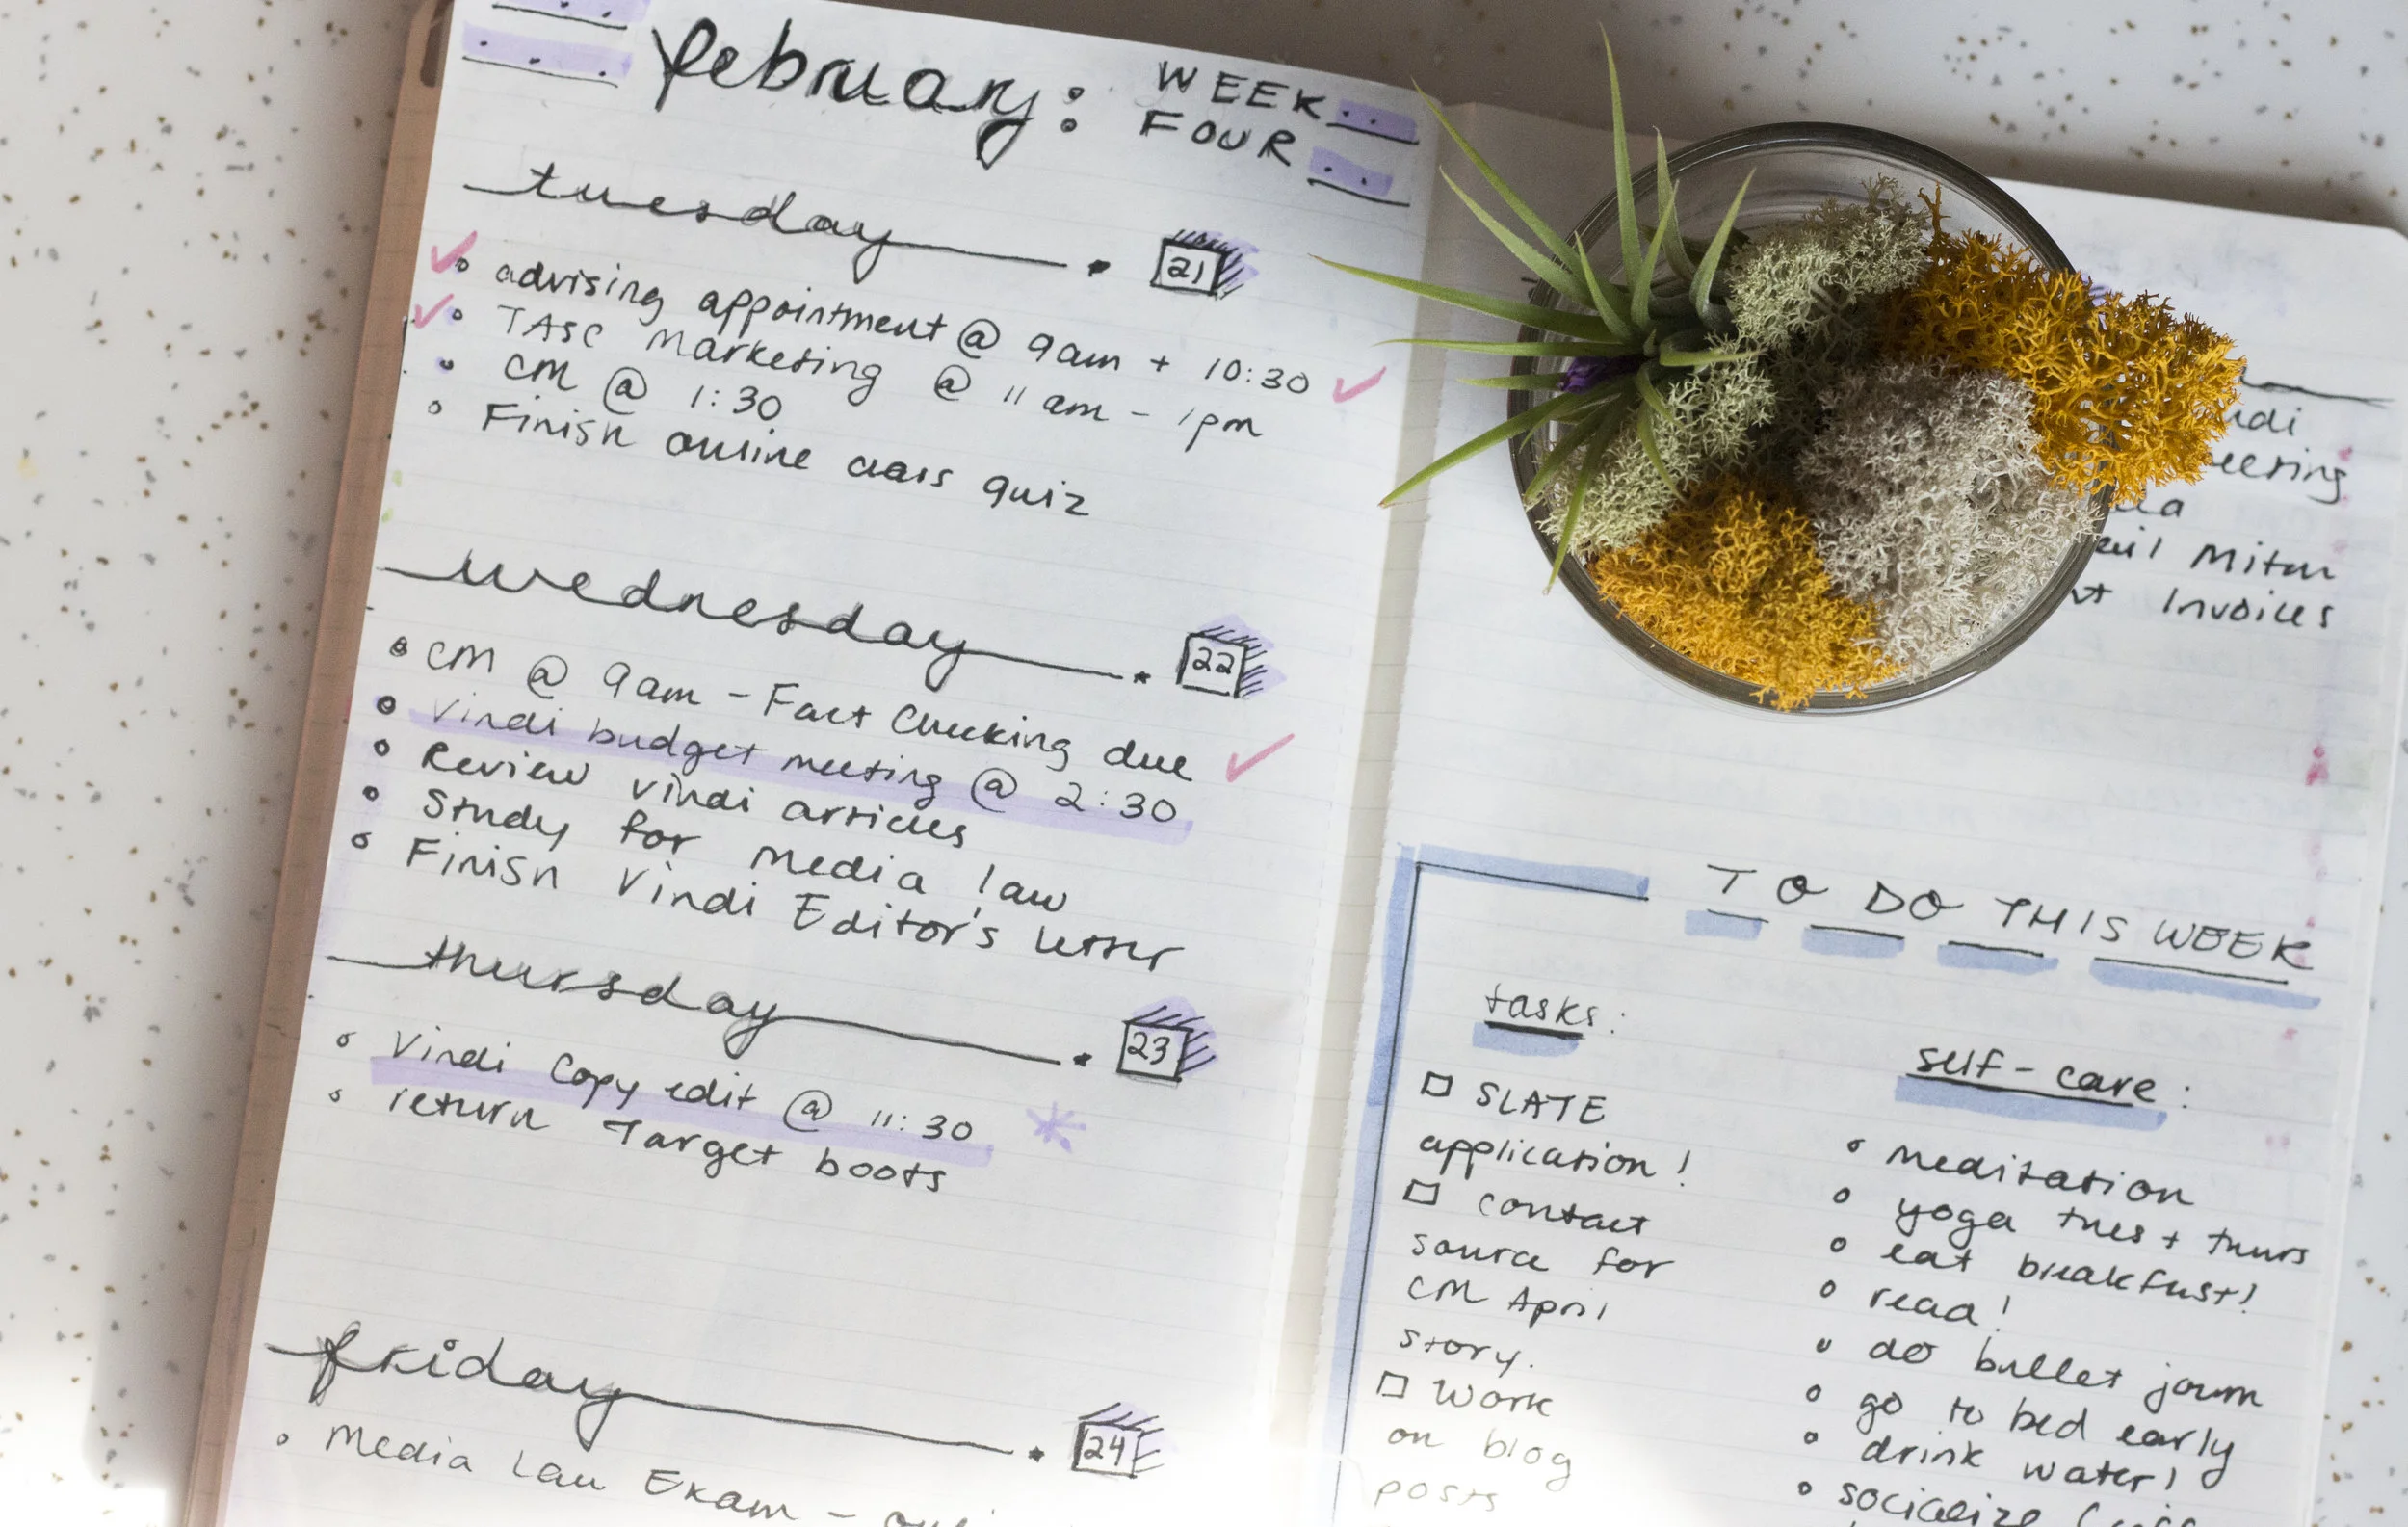 february: WEEK
FOUR
tuesday 21
advising appointment @ 9am + 10:30
TASC Marketing @ 11am - 1pm
CM @ 1:30
Finish online class quiz
wednesday 22
CM @ 9am - Fact Checking due
Vindi budget meeting @ 2:30
Review Vindi articles
Study for Media law
Finish Vindi Editor's letter
thursday 23
Vindi Copy edit @ 11:30
return Target boots
friday 24
Media Law Exam -
Invoices
TO DO THIS WEEK
tasks:
SLATE
application!
contact
source for
CM April
story.
Work
on blog
posts
self-care:
meditation
yoga tues + thurs
eat breakfast!
read!
do bullet journ
go to bed early
drink water!
socialize